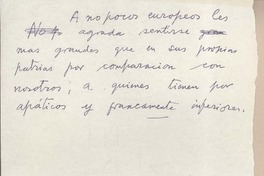 A no pocos europeos les
agrada sentirse
mas grandes que en sus propias
patrias por comparacion con
nosotros, a quienes tienen por
apáticos y francamente inferiores.